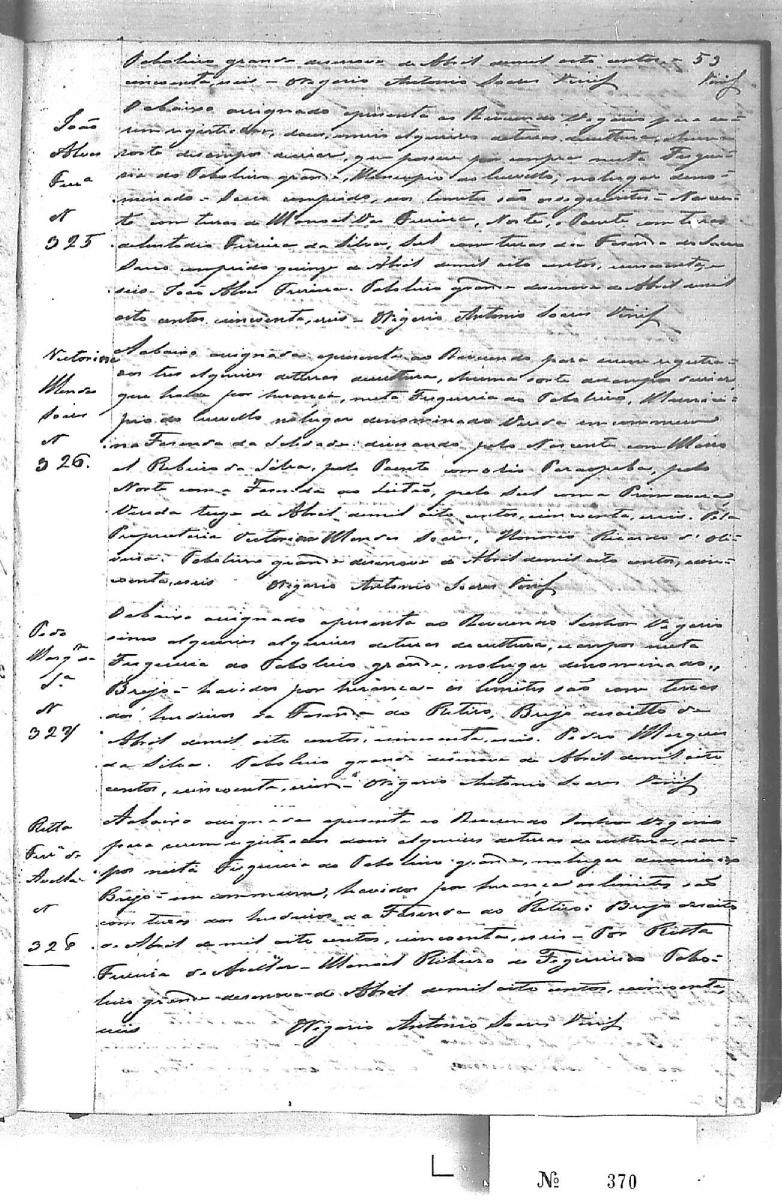 Taboleiro grande desenove de Abril de mil oito centos- 53
cincoenta, e seis - O Vigario Antonio Soares
O abaixo assignado apresenta ao Reverendo Vigario para se-
João
Alves
Fera
N
325
rem registrados, dous, alqueires de terras de cultura, e huma
sorte de campos de criar, que possue por compra nesta Fregue-
sia do Taboleiro grande, Municipio do Curvello, no lugar deno-
minado - Sacco comprido, os limites são os seguintes - Nascen-
te com terras de Manoel Dias Ferreira, Norte, e Poente com terras
de Custodio Ferreira da Silva, Sul com terras da Fazenda do Sacco
Sacco comprido quinze de Abril de mil oito centos, cincoenta, e
seis - João Alves Ferreira - Taboleiro grande desenove de Abril de mil
oito centos, cincoenta, e seis - O Vigario Antonio Soares
Victorina
Mendes
Soares
N
326.
A abaixo assignada apresenta ao Reverendo para serem registra-
dos tres alqueires de terras de cultura, e huma sorte de campos de criar
que houve por herança, nesta Freguesia do Taboleiro, Munici-
pio do Curvello no lugar denominado Vereda em commum
na Fazenda da Soledade: divisando pelo Nascente com
Ribeiro da Silva, pelo Poente com o Rio Paraopeba, pelo
Norte com a Fazenda do Leitão, pelo Sul com a
Vereda treze de Abril de mil oito centos, cincoenta, e seis. Pela
Proprietaria Victorina Mendes Soares, Honorio Ricardo d'Oli-
veira. Taboleiro grande desenove de Abril de mil oito centos, cin-
coenta, e seis O Vigario Antonio Soares
Pedro
Marqs da
Sa
N
327
O abaixo assignado apresenta ao Reverendo Senhor Vigario
sinco alqueires alqueires de terras de cultura, e campos nesta
Freguesia do Taboleiro grande, no lugar denominado,,
Brejo - havidos por herança os limites são com terras
dos herdeiros da Fazenda do Retiro, Brejo desoitto de
Abril de mil oito centos, cincoenta, e seis. Pedro Marques
da Silva. Taboleiro grande desenove de Abril de mil oito
centos, cincoenta, e seis O Vigario Antonio Soares
Ritta
Ferra de
Avellar
N
328
A abaixo assignada apresenta ao Reverendo Senhor Vigario
para serem registrados dois alqueires de terras de cultura, e cam-
pos nesta Freguesia do Taboleiro grande, no lugar denominado
Brejo - em commum, havidos por herança os limites são
com terras dos herdeiros da Fazenda do Retiro: Brejo desoito
de Abril de mil oito centos, cincoenta, e seis - Por Ritta
Ferreira de Avellar - Manoel Ribeiro de Figueiredo Tabo-
leiro grande desenove de Abril de mil oito centos, cincoenta,
e seis O Vigario Antonio Soares
Nº 370